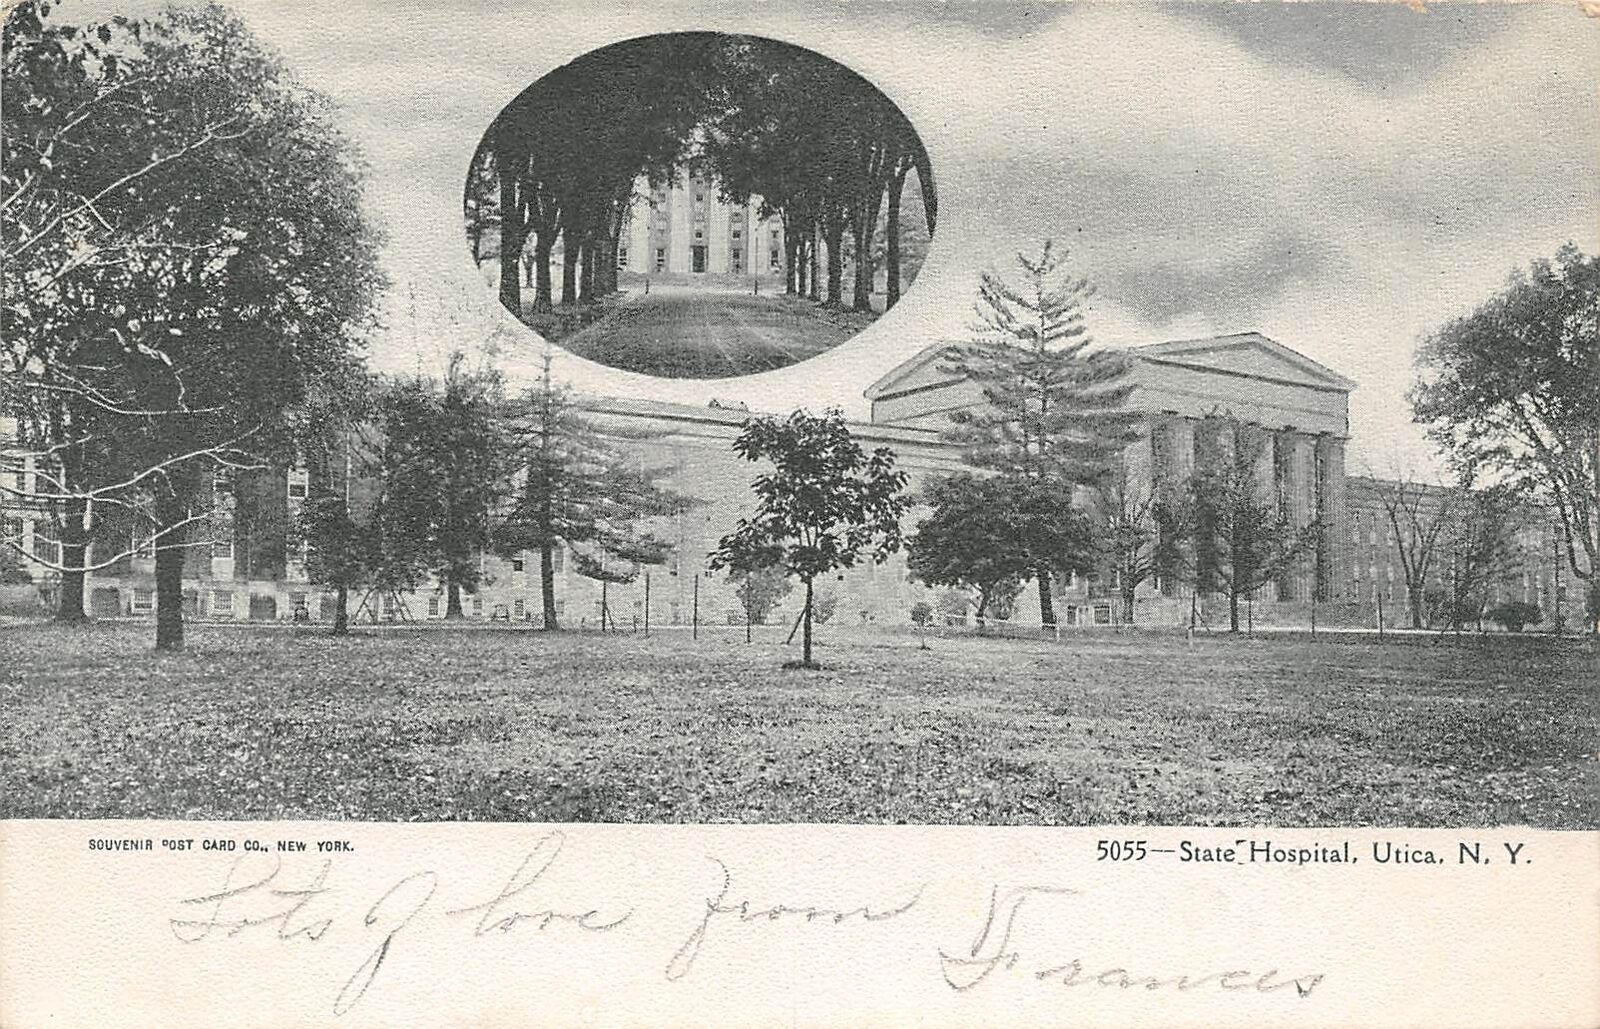 SOUVENIR POST CARD CO., NEW YORK.
5055—State Hospital, Utica, N. Y.
Lots of love from
Frances